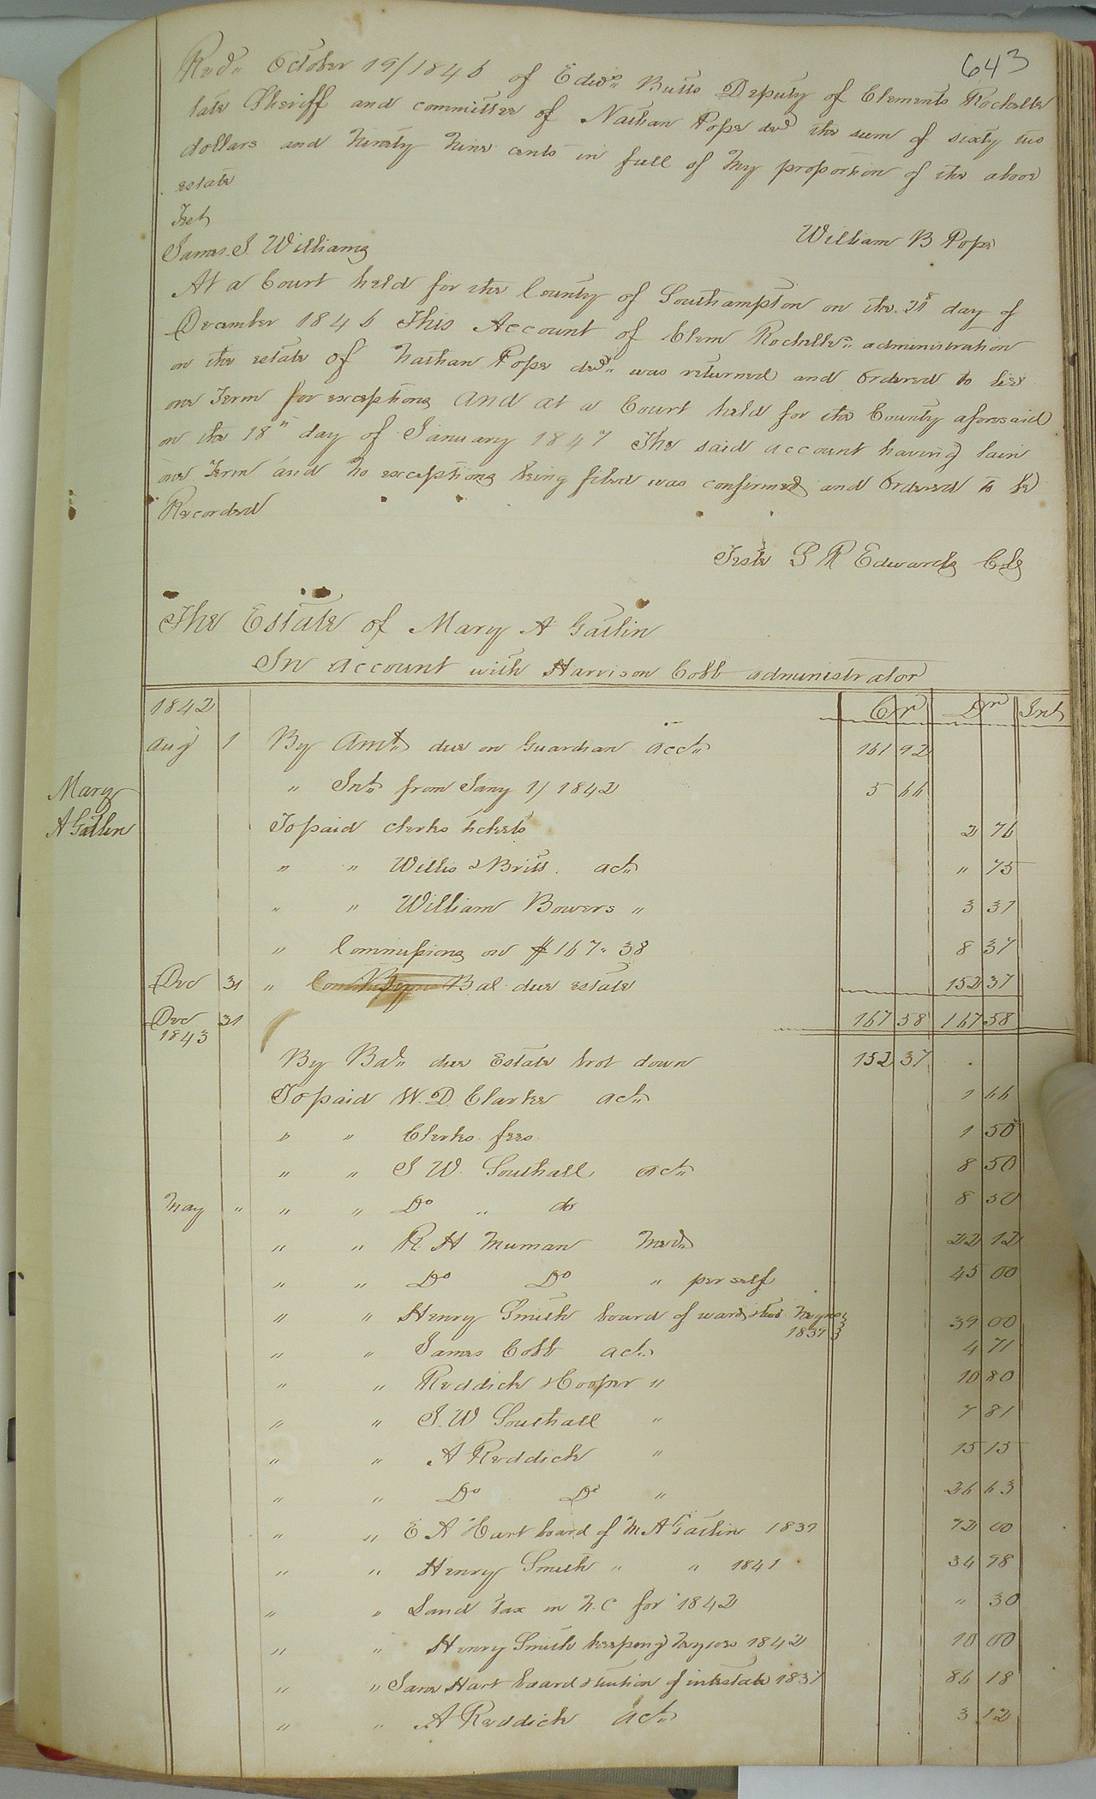 643
Recd. October 19/1846 of Edwd. Butts Deputy of Clements Rochelle
late Sheriff and committee of Nathan Pope decd the sum of sixty two
dollars and Ninety Nine cents in full of my proportion of the above
estate
Test
William B Pope
James S Williams
At a Court held for the County of Southampton on the 21st day of
December 1846 This Account of Clem Rochelles administration
on the estate of Nathan Pope decd. was returned and Ordered to lie
one Term for exceptions And at a Court held for the County aforesaid
on the 18th day of January 1847 The said account having lain
one Term and no exceptions being filed was confirmed and Ordered to be
Recorded
Teste L R Edwards Clk
The Estate of Mary A Gatlin
In account with Harrison Cobb administrator
1842 Cr Dr Int
Aug 1 By Amt. due on Guardian acct. 161 92
Mary " Int. from Jany 1/ 1842 5 66
A Gatlin To paid clerks tickets 2 76
" " Willis & Britt. act. " 75
" " William Bowers " 3 31
" Commissions on $167.58 8 37
Dec 31 " Bal due estate 152 37
Dec 31 167 58 167 58
1843
By Bal. due Estate brot down 152 37
To paid W. D. Clarke act. 1 66
" " Clerks fees 1 50
" " J W. Southall act. 8 50
May " " " Do " do 8 50
" " R H 22 12
" " Do Do " per self 45 00
" " Henry Smith board of ward & two Negroes 39 00
1837
" " James Cobb act. 4 71
" " Reddick & Cooper " 10 80
" " J. W Southall " 7 81
" " A Reddick " 15 15
" " Do Do " 26 63
" " E A Hart board of M A Gatlin 1839 72 00
" " Henry Smith " " 1841 34 98
" " Land Tax in N. C for 1842 " 30
" " Henry Smith keeping Negroes 1842 10 00
" " Hart board & tuition of intestate 1837 86 18
" " A Reddick act. 3 12